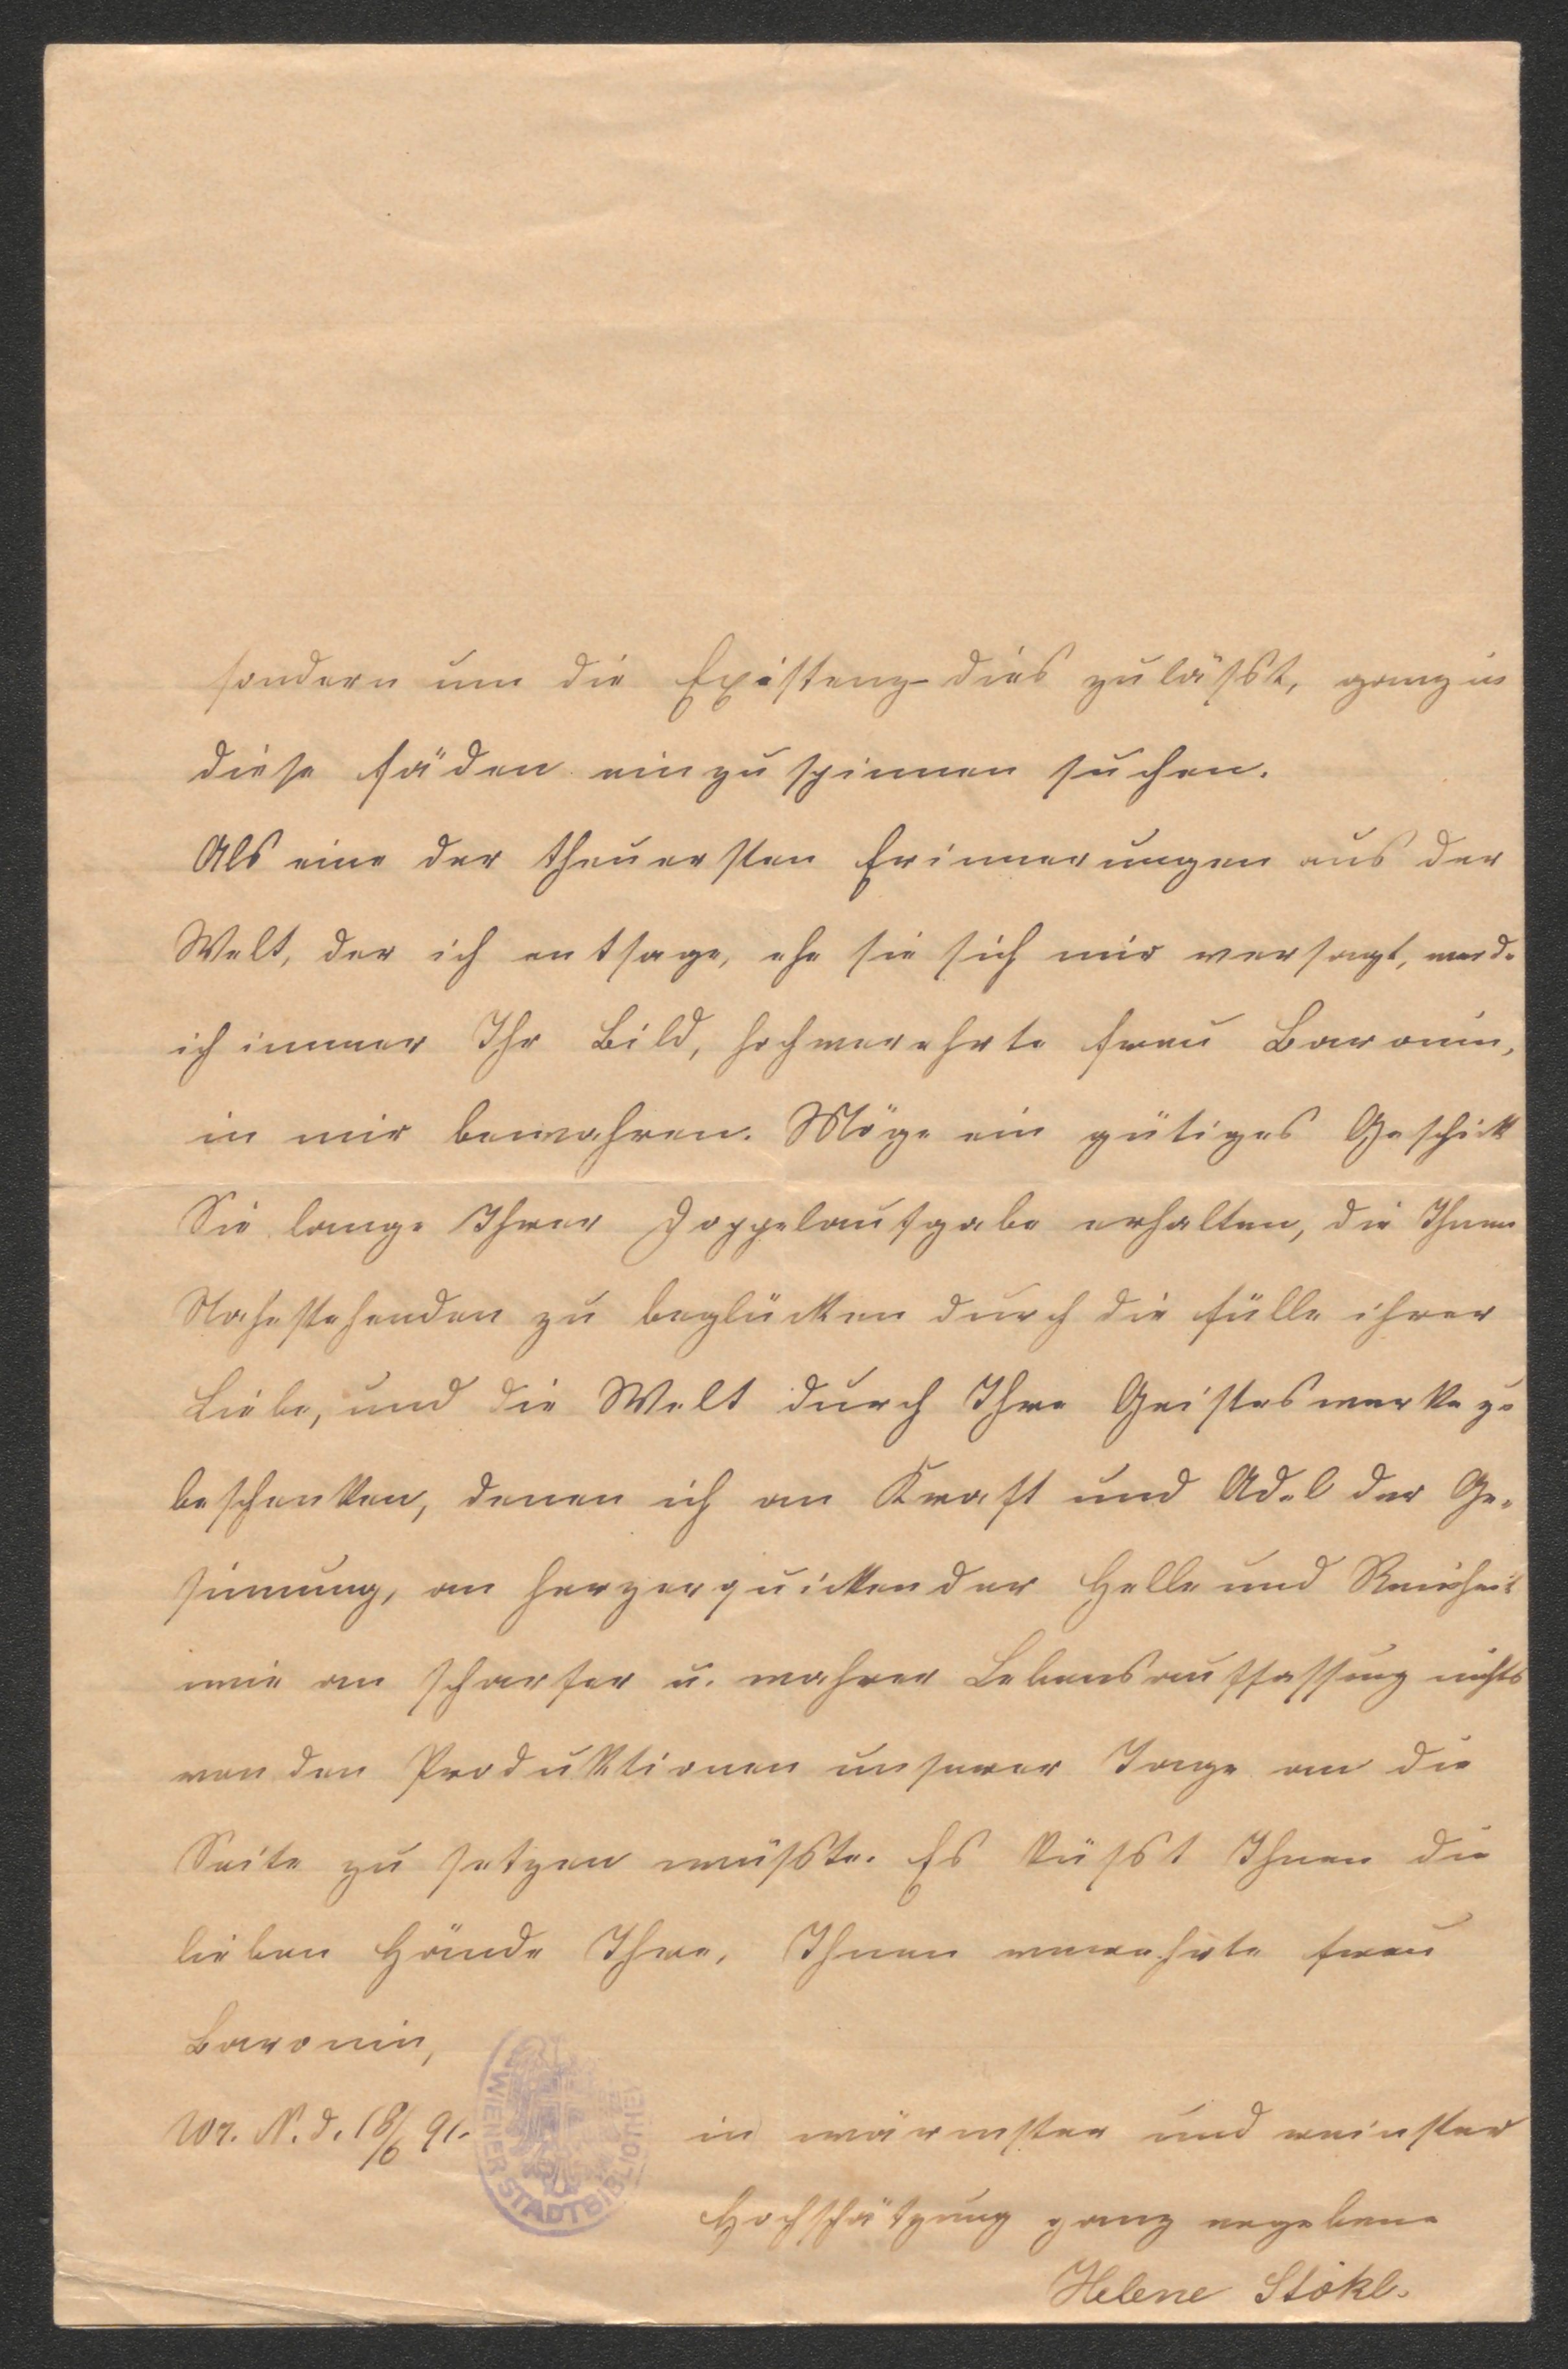 sondern um die Existenz dies zuläßt, ganz in
diese Fäden einzuspinnen suchen.
Als eine der theuersten Erinnerungen aus der
Welt, der ich entsage, ehe sie sich mir versagt, werde
ich immer Ihr Bild, hochverehrte Frau Baronin,
in mir bewahren. Möge ein gütiges Geschick
Sie lange Ihrer Doppelaufgabe erhalten, die Ihnen
Nahestehenden zu beglücken durch die Fülle ihrer
Liebe, und die Welt durch Ihre Geisteswerke zu
beschenken, denen ich an Kraft und Adel der Ge-
sinnung, an herzerquickender Helle und Reinheit
wie an scharfer u. wahrer Lebensauffassung nichts
von den Produktionen unserer Tage an die
Seite zu setzen wüßte. Es küßt Ihnen die
lieben Hände Ihre, Ihnen verehrte Frau
Baronin,
Wr. N. d. 18/6 91.
in wärmster und reinster
Hochschätzung ganz ergebene
Helene Stökl.
WIENER STADTBIBLIOTHEK